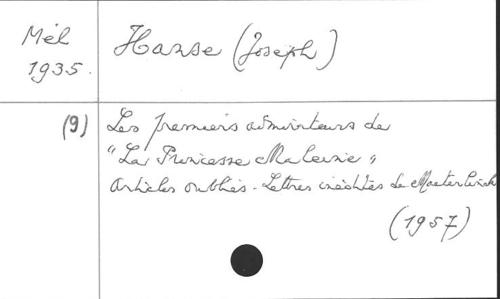 Mél
1935.
Hanse (Joseph)
(9)
Les premiers admirateurs de
"La Princesse Maleine"
Articles oubliés - Lettres inédites de Maeterlinck
(1957)